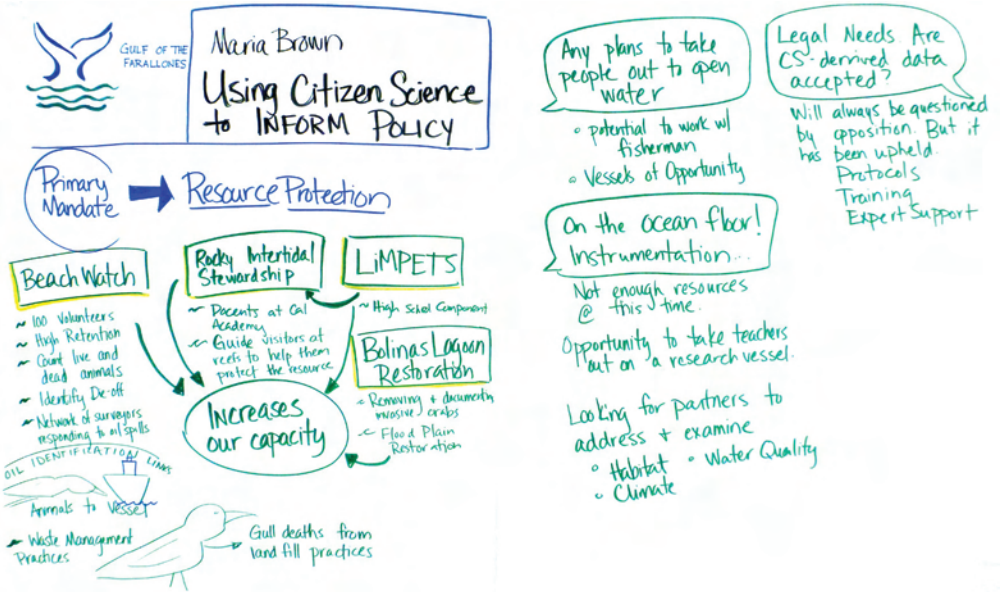 GULF OF THE
FARALLONES
Maria Brown
Using Citizen Science
to INFORM POLICY
Primary
Mandate
Resource Protection
Beach Watch
~ 100 Volunteers
~ High Retention
~ Count live and
dead animals
~ Identify De-off
~ Network of surveyors
responding to oil spills
OIL IDENTIFICATION LINKS
Animals to Vessel
Waste Management
Practices
Gull deaths from
land fill practices
Rocky Intertidal
Stewardship
~ Docents at Cal
Academy
~ Guide visitors at
reefs to help them
protect the resource
LiMPETS
~ High School Component
Bolinas Lagoon
Restoration
~ Removing + documentin
invasive crabs
~ Flood Plain
Restoration
Increases
our capacity
Any plans to take
people out to open
water
• potential to work w/
fisherman
• Vessels of Opportunity
On the ocean floor!
Instrumentation...
Not enough resources
@ this time.
Opportunity to take teachers
out on a research vessel.
Looking for partners to
address + examine
• Habitat • Water Quality
• Climate
Legal Needs. Are
CS-derived data
accepted?
Will always be questioned
by opposition. But it
has been upheld.
Protocols
Training
Expert Support